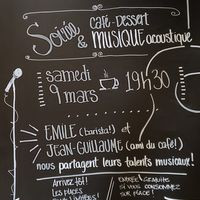 Soirée café-dessert
& MUSIQUE acoustique
samedi
9 mars 19h30
ÉMILE (barista!) et
JEAN-GUILLAUME (ami du café!)
nous partagent leurs talents musicaux!
ARRIVEZ tôt!
LES PLACES
SONT LIMITÉES!
ENTRÉE GRATUITE
SI VOUS CONSOMMEZ
SUR PLACE!